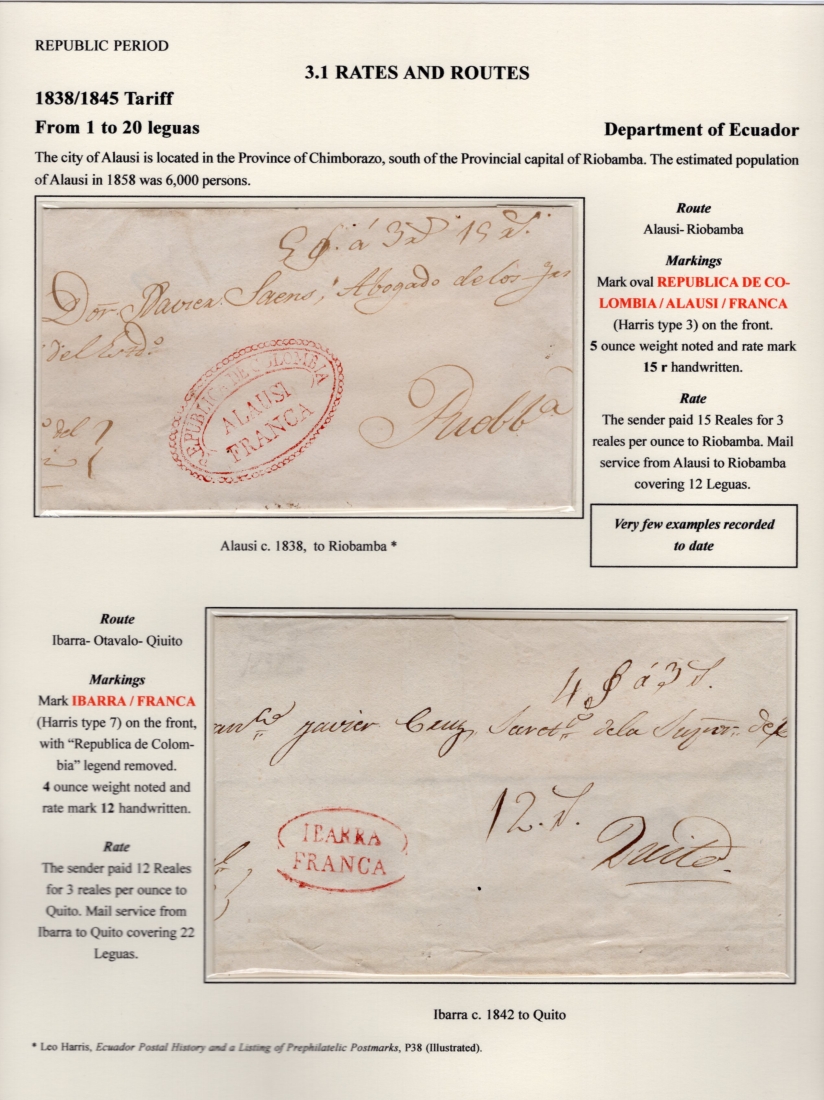 REPUBLIC PERIOD
3.1 RATES AND ROUTES
1838/1845 Tariff
From 1 to 20 leguas
Department of Ecuador
The city of Alausi is located in the Province of Chimborazo, south of the Provincial capital of Riobamba. The estimated population
of Alausi in 1858 was 6,000 persons.
á 3
Dor. Javier Saens, Abogado de los
del
REPUBLICA DE COLOMBIA
ALAUSI
FRANCA
del
Riobba
Route
Alausi- Riobamba
Markings
Mark oval REPUBLICA DE CO-
LOMBIA / ALAUSI / FRANCA
(Harris type 3) on the front.
5 ounce weight noted and rate mark
15 r handwritten.
Rate
The sender paid 15 Reales for 3
reales per ounce to Riobamba. Mail
service from Alausi to Riobamba
covering 12 Leguas.
Very few examples recorded
to date
Alausi c. 1838, to Riobamba *
Route
Ibarra- Otavalo- Qiuito
Markings
Mark IBARRA / FRANCA
(Harris type 7) on the front,
with “Republica de Colom-
bia” legend removed.
4 ounce weight noted and
rate mark 12 handwritten.
Rate
The sender paid 12 Reales
for 3 reales per ounce to
Quito. Mail service from
Ibarra to Quito covering 22
Leguas.
4 á 3
javier dela
12
IBARRA
FRANCA
Quito
Ibarra c. 1842 to Quito
* Leo Harris, Ecuador Postal History and a Listing of Prephilatelic Postmarks, P38 (Illustrated).